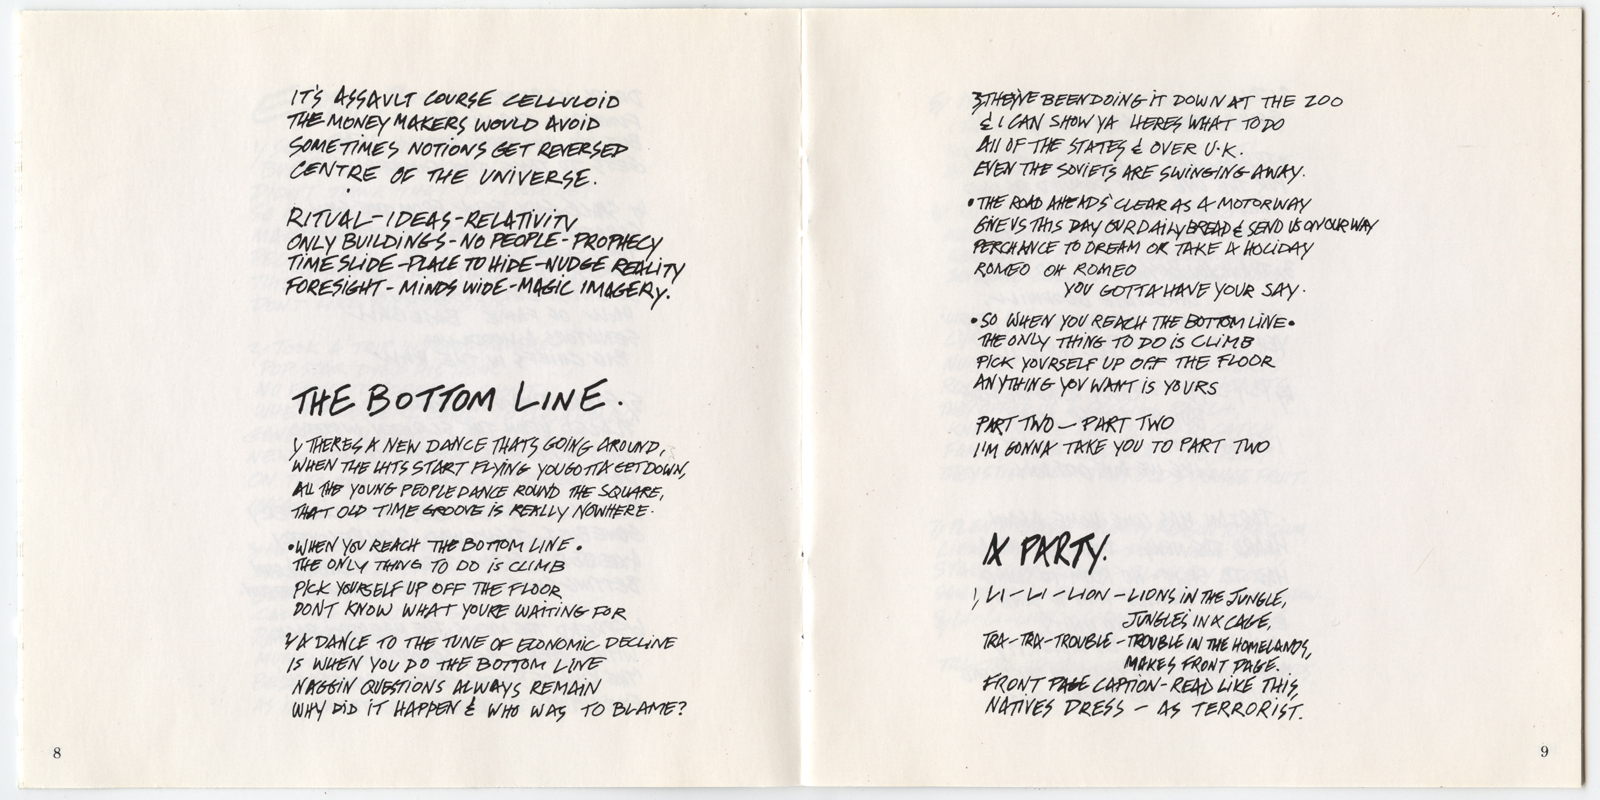 IT'S ASSAULT COURSE CELLULOID
THE MONEY MAKERS WOULD AVOID
SOMETIMES NOTIONS GET REVERSED
CENTRE OF THE UNIVERSE.
RITUAL-IDEAS-RELATIVITY
ONLY BUILDINGS-NO PEOPLE-PROPHECY
TIMESLIDE-PLACE TO HIDE-NUDGE REALITY
FORESIGHT-MINDS WIDE-MAGIC IMAGERY.
THE BOTTOM LINE.
1/ THERES A NEW DANCE THATS GOING AROUND,
WHEN THE HITS START FLYING YOU GOTTA GET DOWN,
ALL THE YOUNG PEOPLE DANCE ROUND THE SQUARE,
THAT OLD TIME GROOVE IS REALLY NOWHERE.
•WHEN YOU REACH THE BOTTOM LINE•
THE ONLY THING TO DO IS CLIMB
PICK YOURSELF UP OFF THE FLOOR
DONT KNOW WHAT YOURE WAITING FOR
2/ A DANCE TO THE TUNE OF ECONOMIC DECLINE
IS WHEN YOU DO THE BOTTOM LINE
NAGGIN QUESTIONS ALWAYS REMAIN
WHY DID IT HAPPEN & WHO WAS TO BLAME?
8
3/ THEY'VE BEEN DOING IT DOWN AT THE ZOO
& I CAN SHOW YA HERES WHAT TO DO
All OF THE STATES & OVER U.K.
EVEN THE SOVIETS ARE SWINGING AWAY.
•THE ROAD AHEADS CLEAR AS A MOTORWAY
GIVE US THIS DAY OUR DAILY BREAD & SEND US ON OUR WAY
PERCHANCE TO DREAM OR TAKE A HOLIDAY
ROMEO OH ROMEO
YOU GOTTA HAVE YOUR SAY.
•SO WHEN YOU REACH THE BOTTOM LINE•
THE ONLY THING TO DO IS CLIMB
PICK YOURSELF UP OFF THE FLOOR
ANYTHING YOU WANT IS YOURS
PART TWO — PART TWO
I'M GONNA TAKE YOU TO PART TWO
A PARTY.
1, LI-LI-LION-LIONS IN THE JUNGLE,
JUNGLES IN A CAGE,
TRA-TRA-TROUBLE-TROUBLE IN THE HOMELANDS,
MAKES FRONT PAGE.
FRONT PAGE CAPTION-READ LIKE THIS,
NATIVES DRESS - AS TERRORIST.
9